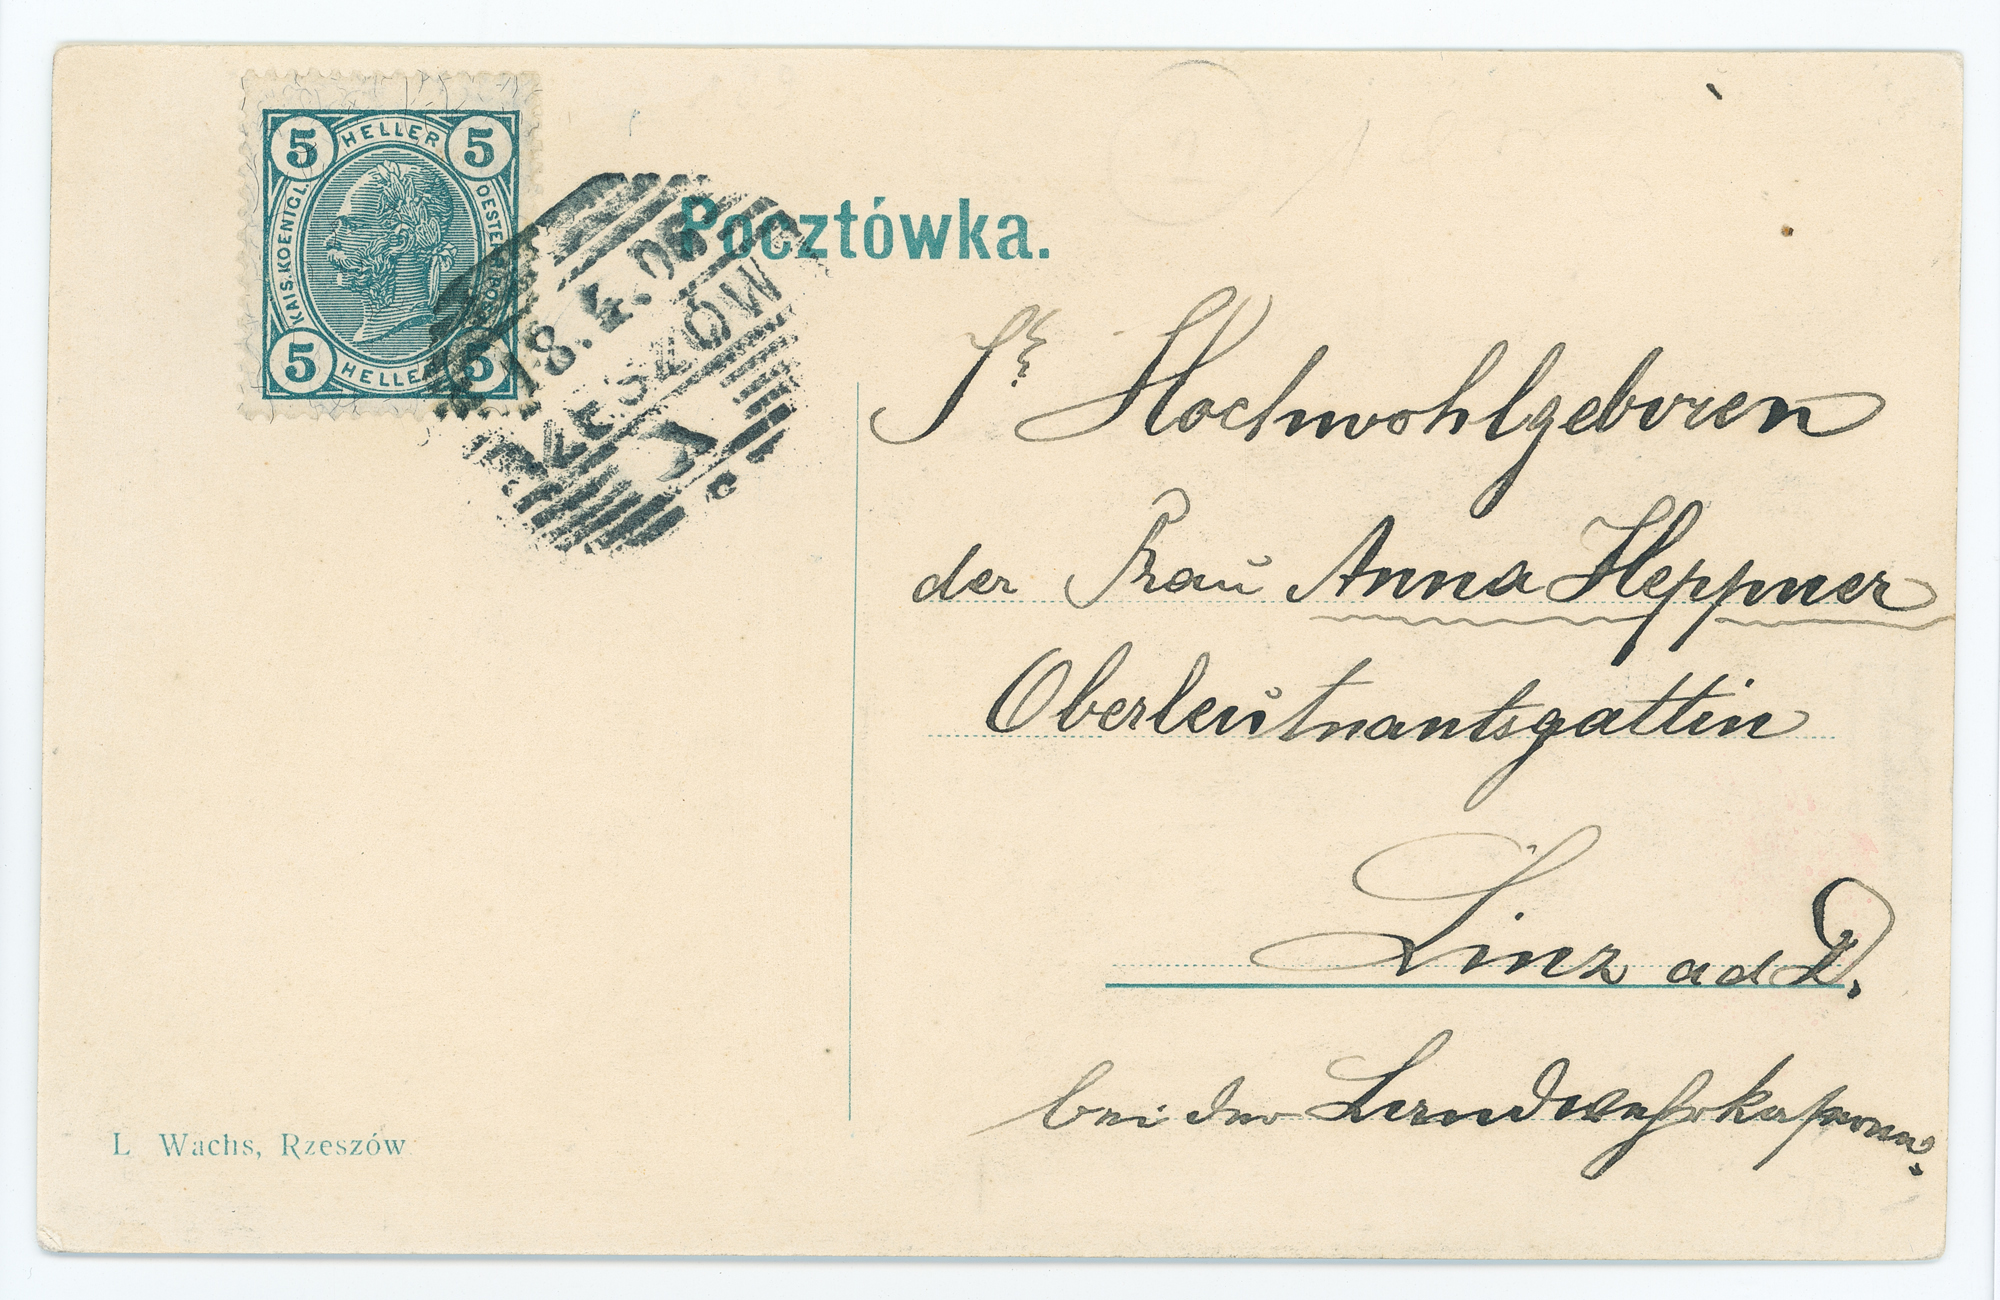 5 HELLER 5
KAIS. KOENIGL.
5 HELLER 5
18.4.06
RZESZÓW
1
Pocztówka.
Sr Hochwohlgeboren
der Frau Anna Heppner
Oberleutnantsgattin
Linz a d D.
bei der Landwehrkaserne.
L Wachs, Rzeszów